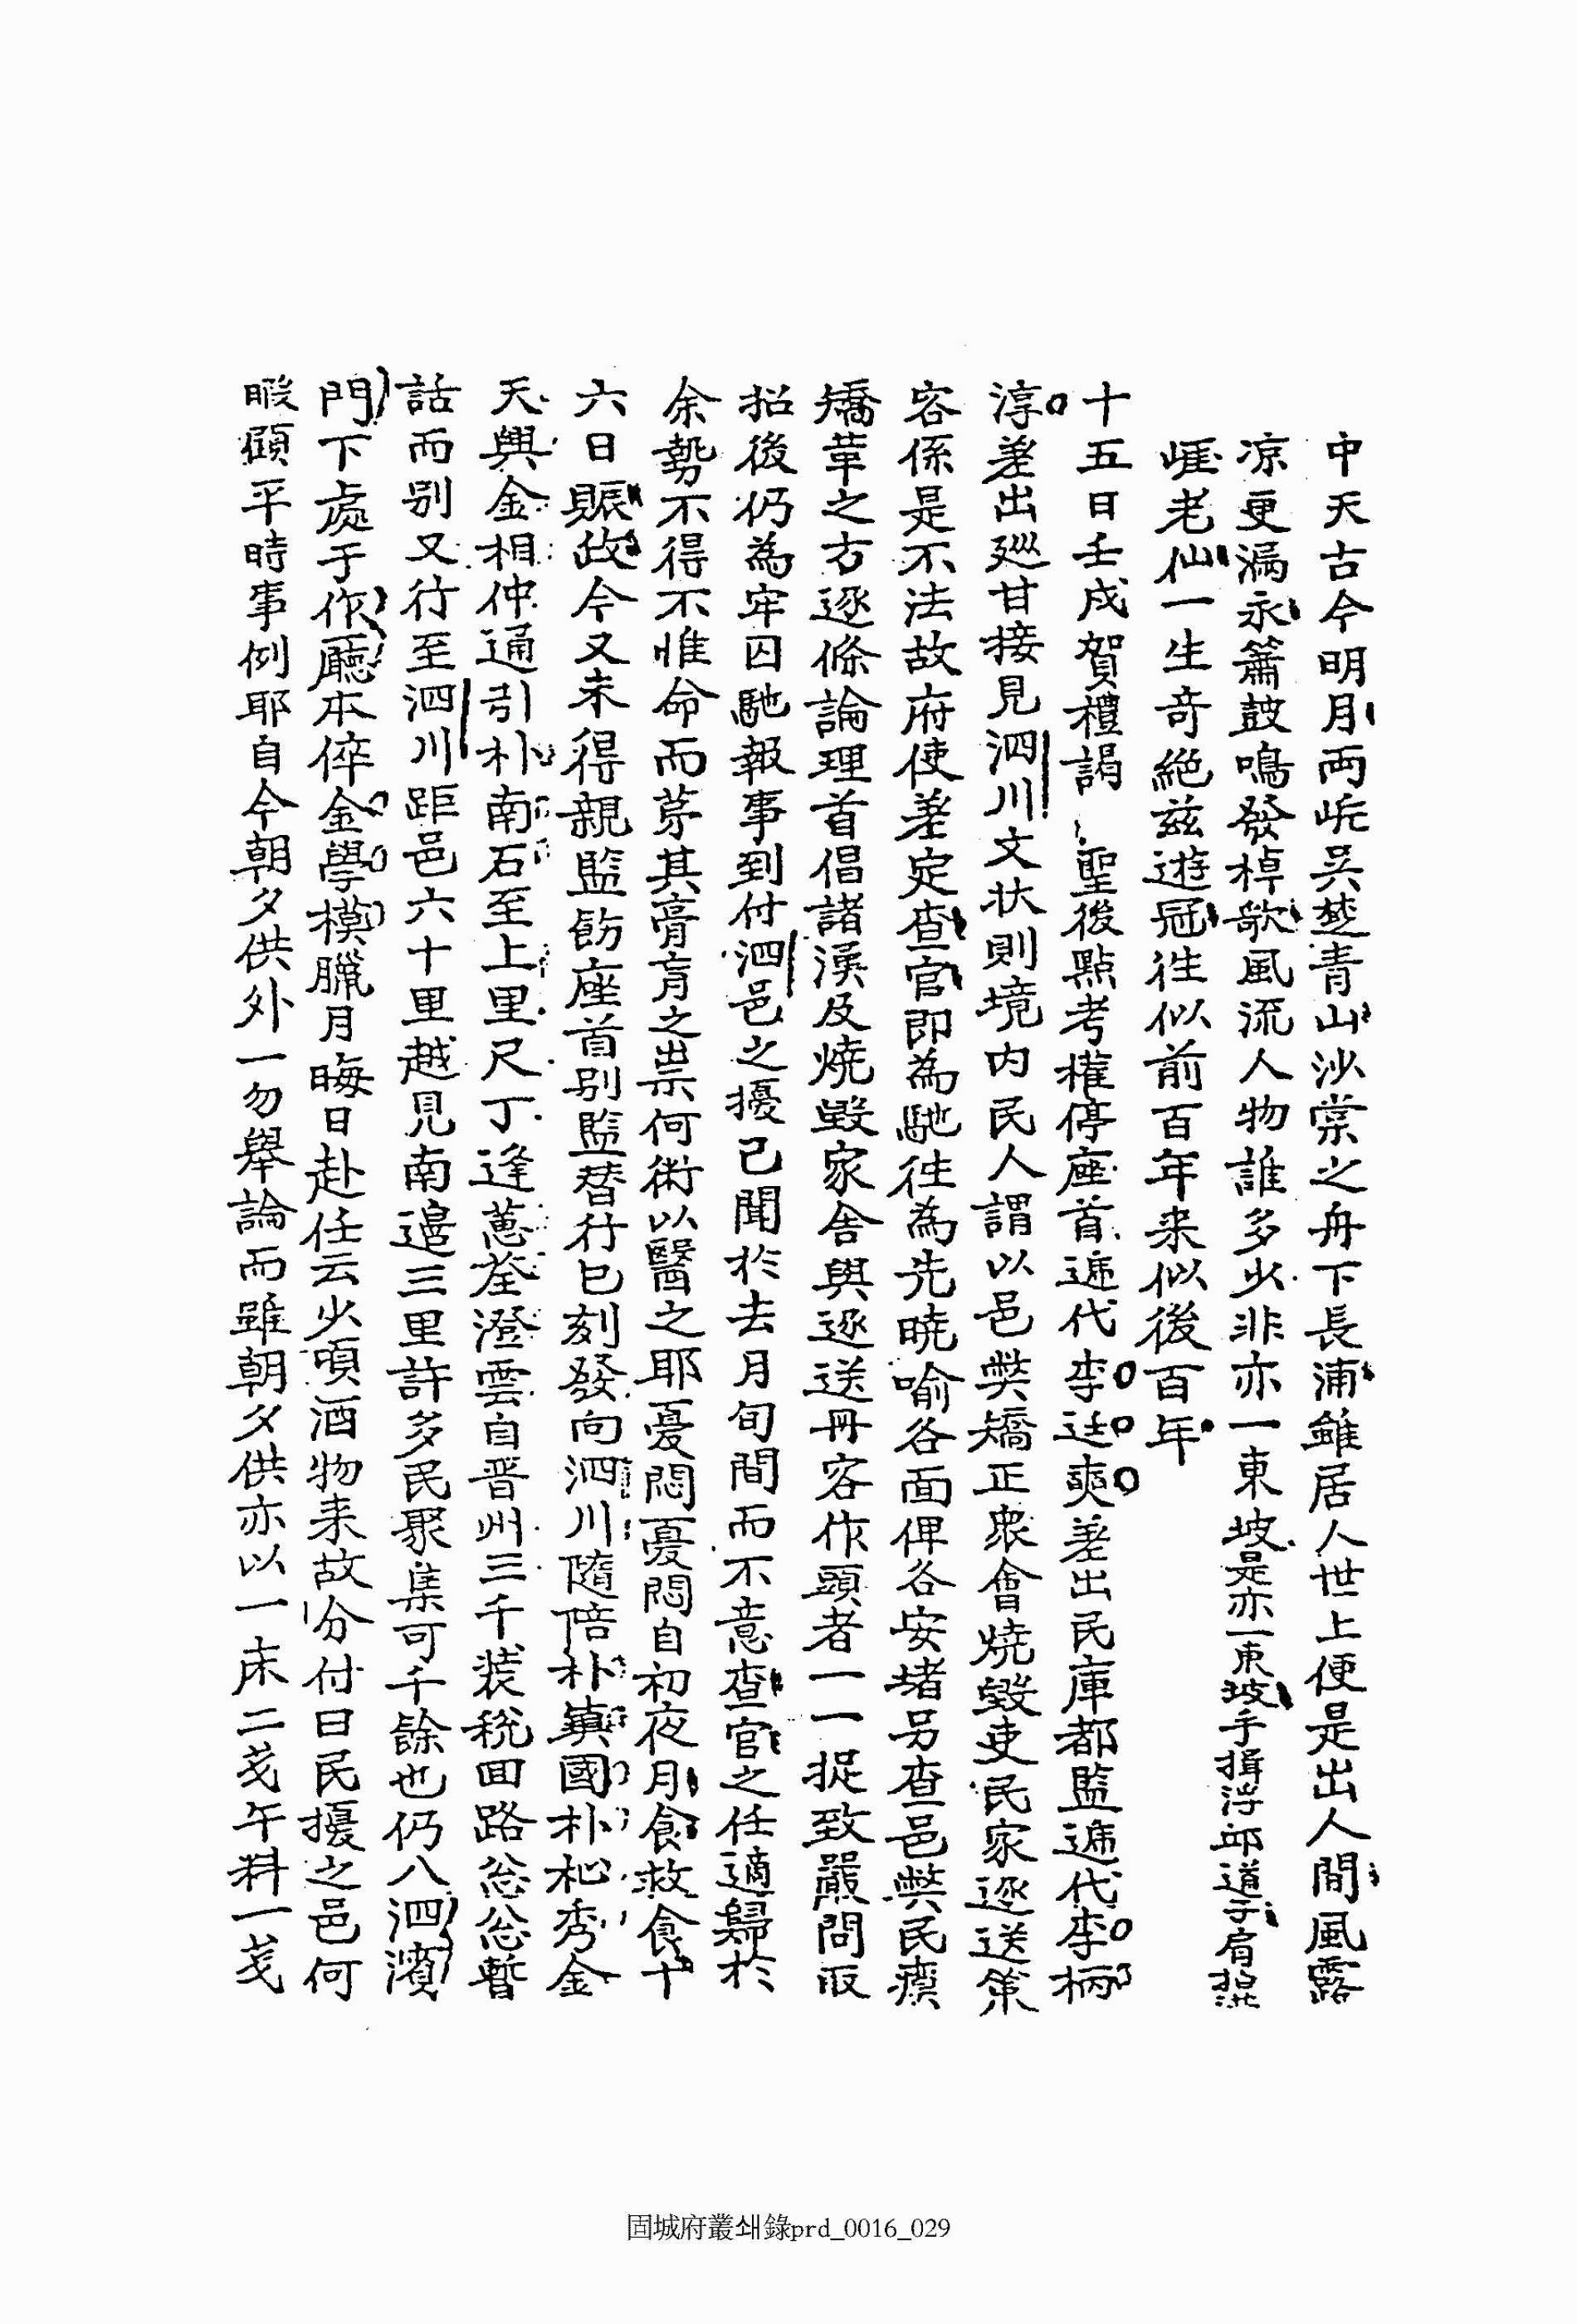 中天古今明月兩岸吳楚青山沙棠之舟下長浦雖居人世上便是出人間風露
凉更漏永簫鼓鳴發棹歌風流人物誰多少非亦一東坡是亦一東坡手揖浮邱道子肩
崕老仙一生奇絶玆遊冠徃似前百年来似後百年
十五日壬戌賀禮謁聖後點考權停座首遞代李廷奭差出民庫都監遞代李柄
淳差出巡甘接見泗川文状則境内民人謂以邑弊矯正衆會燒毁吏民家逐送策
客係是不法故府使差定查官即為馳徃為先暁喻各面俾各安堵另查邑弊民瘼
矯革之方逐條論理首倡諸漢及燒毁家舍與逐送冊客作頭者一一捉致嚴問取
招後仍為牢囚馳報事到付泗邑之擾已聞於去月旬間而不意查官之任適歸於
余勢不得不惟命而芽其膏肓之祟何術以醫之耶憂悶憂悶自初夜月食救食十
六日賑政今又未得親監飭座首别監替行巳刻發向泗川隨陪朴 國朴 秀金
天興金相仲通引朴南石至上里尺丁逢蕙荃澄雲自晋州三千装税回路忩忩暫
話而别又行至泗川距邑六十里越見南邊三里許多民聚集可千餘也仍入泗濱
門下處于作廳本倅金學模臘月晦日赴任云少頃酒物来故分付曰民擾之邑何
暇顧平時事例耶自今朝夕供外一勿舉論而雖朝夕供亦以一床二戔午料一戔
固城府叢쇄錄prd_0016_029